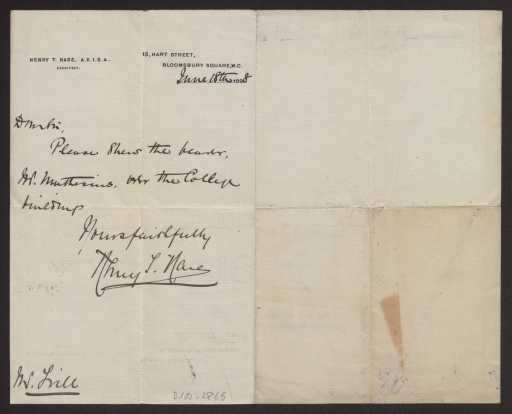 HENRY T. HARE, A.R.I.B.A.,
ARCHITECT.
13, HART STREET,
BLOOMSBURY SQUARE, W.C.
June 18th 1898
Dear Sir,
Please shew the bearer,
Mr. Muthesius, over the College
buildings
Yours faithfully
Henry T. Hare
Mr.